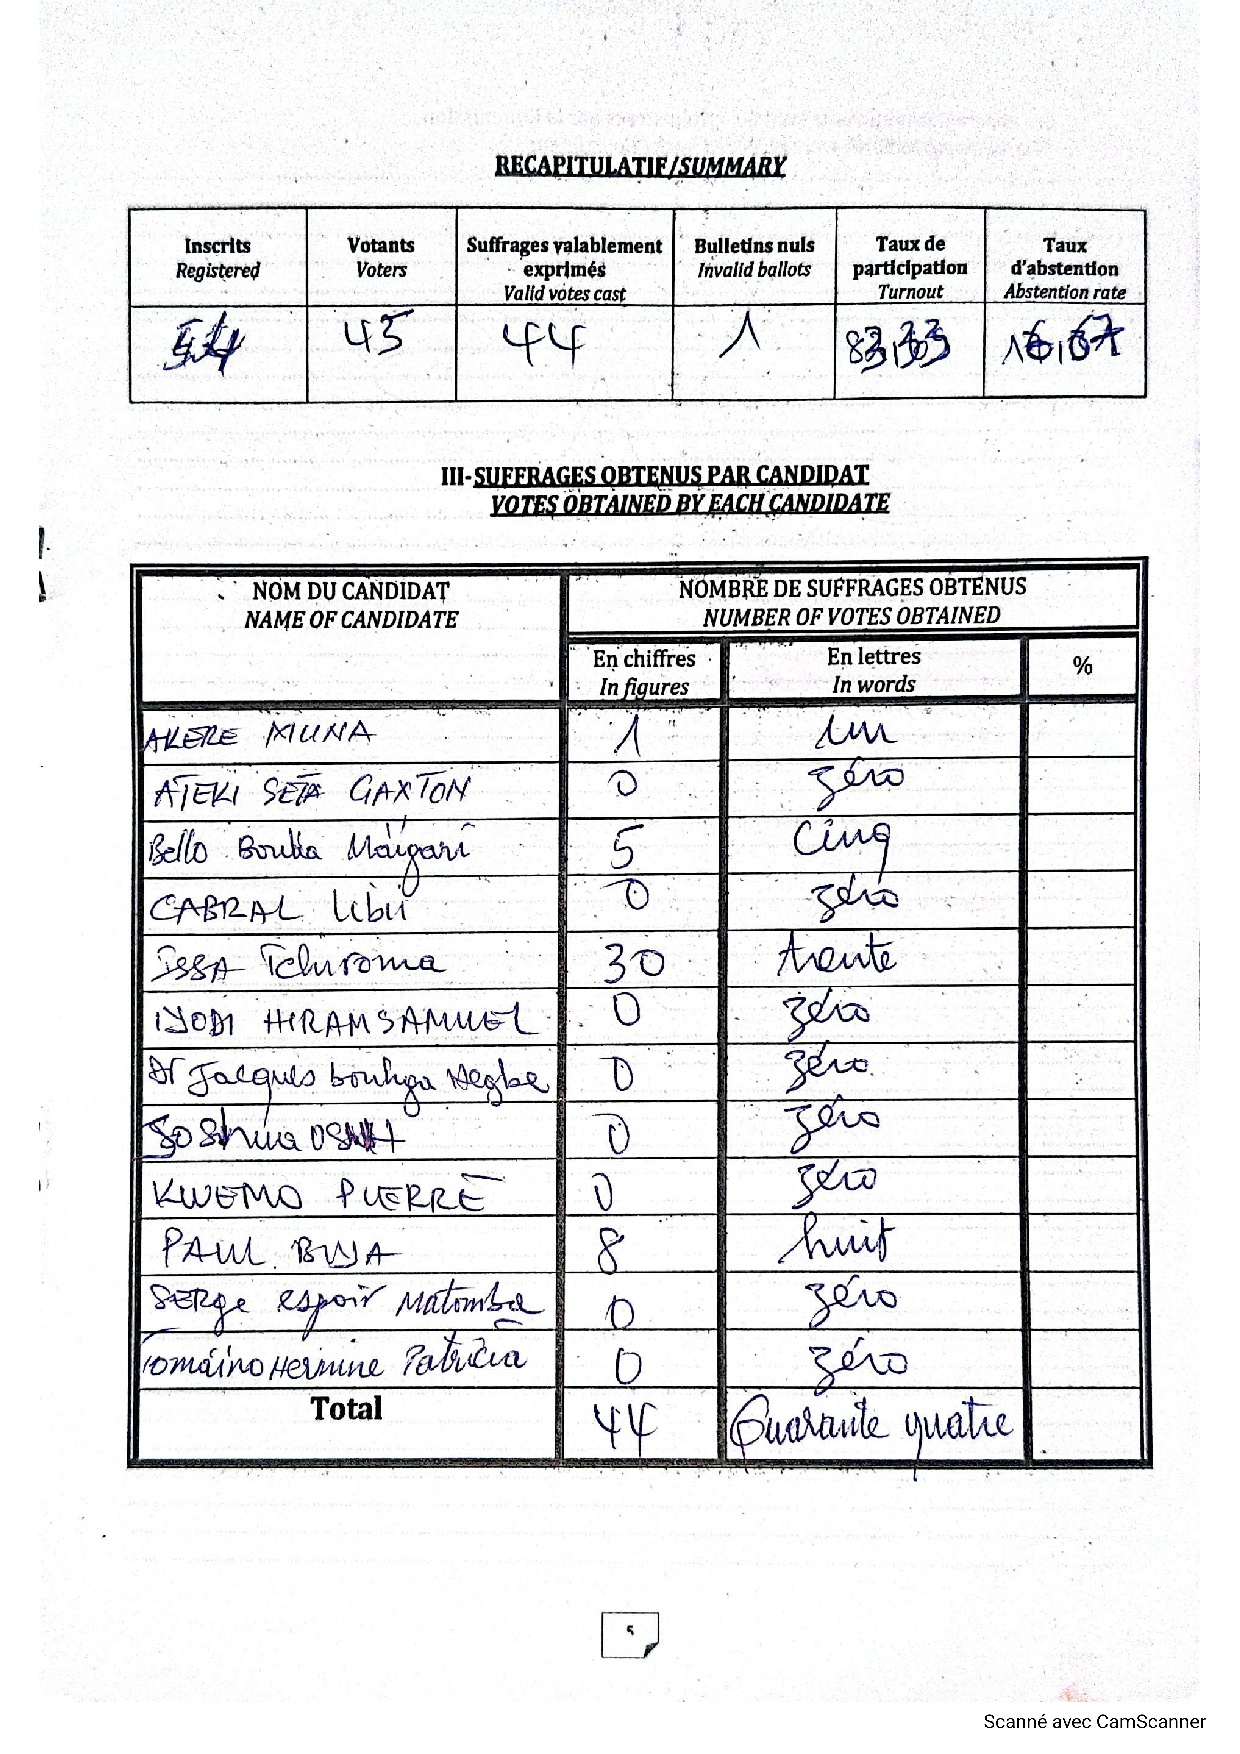 RECAPITULATIF/SUMMARY
Inscrits Votants Suffrages valablement Bulletins nuls Taux de Taux
Registered Voters exprimés Invalid ballots participation d'abstention
Valid votes cast Turnout Abstention rate
54 45 44 1 83,33 16,67
III-SUFFRAGES OBTENUS PAR CANDIDAT
VOTES OBTAINED BY EACH CANDIDATE
NOM DU CANDIDAT NOMBRE DE SUFFRAGES OBTENUS
NAME OF CANDIDATE NUMBER OF VOTES OBTAINED
En chiffres En lettres %
In figures In words
AKERE MUNA 1 un
ATEKI SETA GAXTON 0 zéro
Bello Bouba Maïgari 5 Cinq
CABRAL Libii 0 zéro
ISSA Tchiroma 30 trente
IYODI HIRAM SAMUEL 0 zéro
Dr Jacques bouhga Hegbe 0 zéro
Joshua OSIH 0 zéro
KWEMO PIERRE 0 zéro
PAUL BIYA 8 huit
SERge espoir Matomba 0 zéro
Tomaino Hermine Patricia 0 zéro
Total 44 Quarante quatre
5
Scanné avec CamScanner